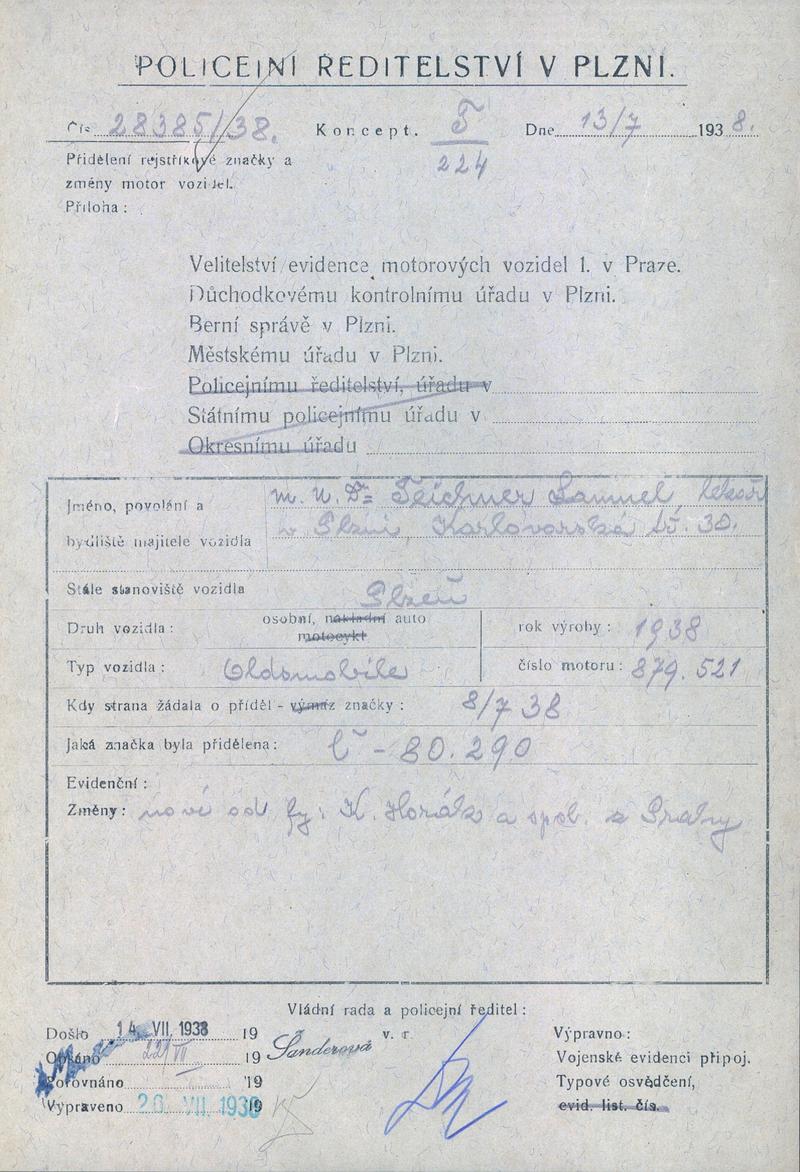 POLICEJNÍ ŘEDITELSTVÍ V PLZNI.
Čís. 28385/38. Koncept. T Dne 13/7 1938.
224
Přidělení rejstříkové značky a
změny motor vozidel.
Příloha:
Velitelství evidence motorových vozidel 1. v Praze.
Důchodkovému kontrolnímu úřadu v Plzni.
Berní správě v Plzni.
Městskému úřadu v Plzni.
Policejnímu ředitelství, úřadu v
Státnímu policejnímu úřadu v
Okresnímu úřadu
Jméno, povolání a m. u. Dr Teichner Samuel, lékař
bydliště majitele vozidla v Plzni, Karlovarská tř. 30.
Stále stanoviště vozidla Plzeň
Druh vozidla: osobní, nákladní auto rok výroby: 1938
motocykl
Typ vozidla: Oldsmobile číslo motoru: 879.521
Kdy strana žádala o příděl - výmaz značky: 8/7 38
Jaká značka byla přidělena: Č - 80.290
Evidenční:
Změny: nové od fy: K. Horák a spol. z Prahy
Vládní rada a policejní ředitel:
Došlo 14. VII. 1938 19 v. r. Výpravno:
Opsáno 22/VII 19 Šanderová Vojenské evidenci připoj.
Porovnáno 19 Typové osvědčení,
Vypraveno 26. VII. 1938 19 evid. list. čís.